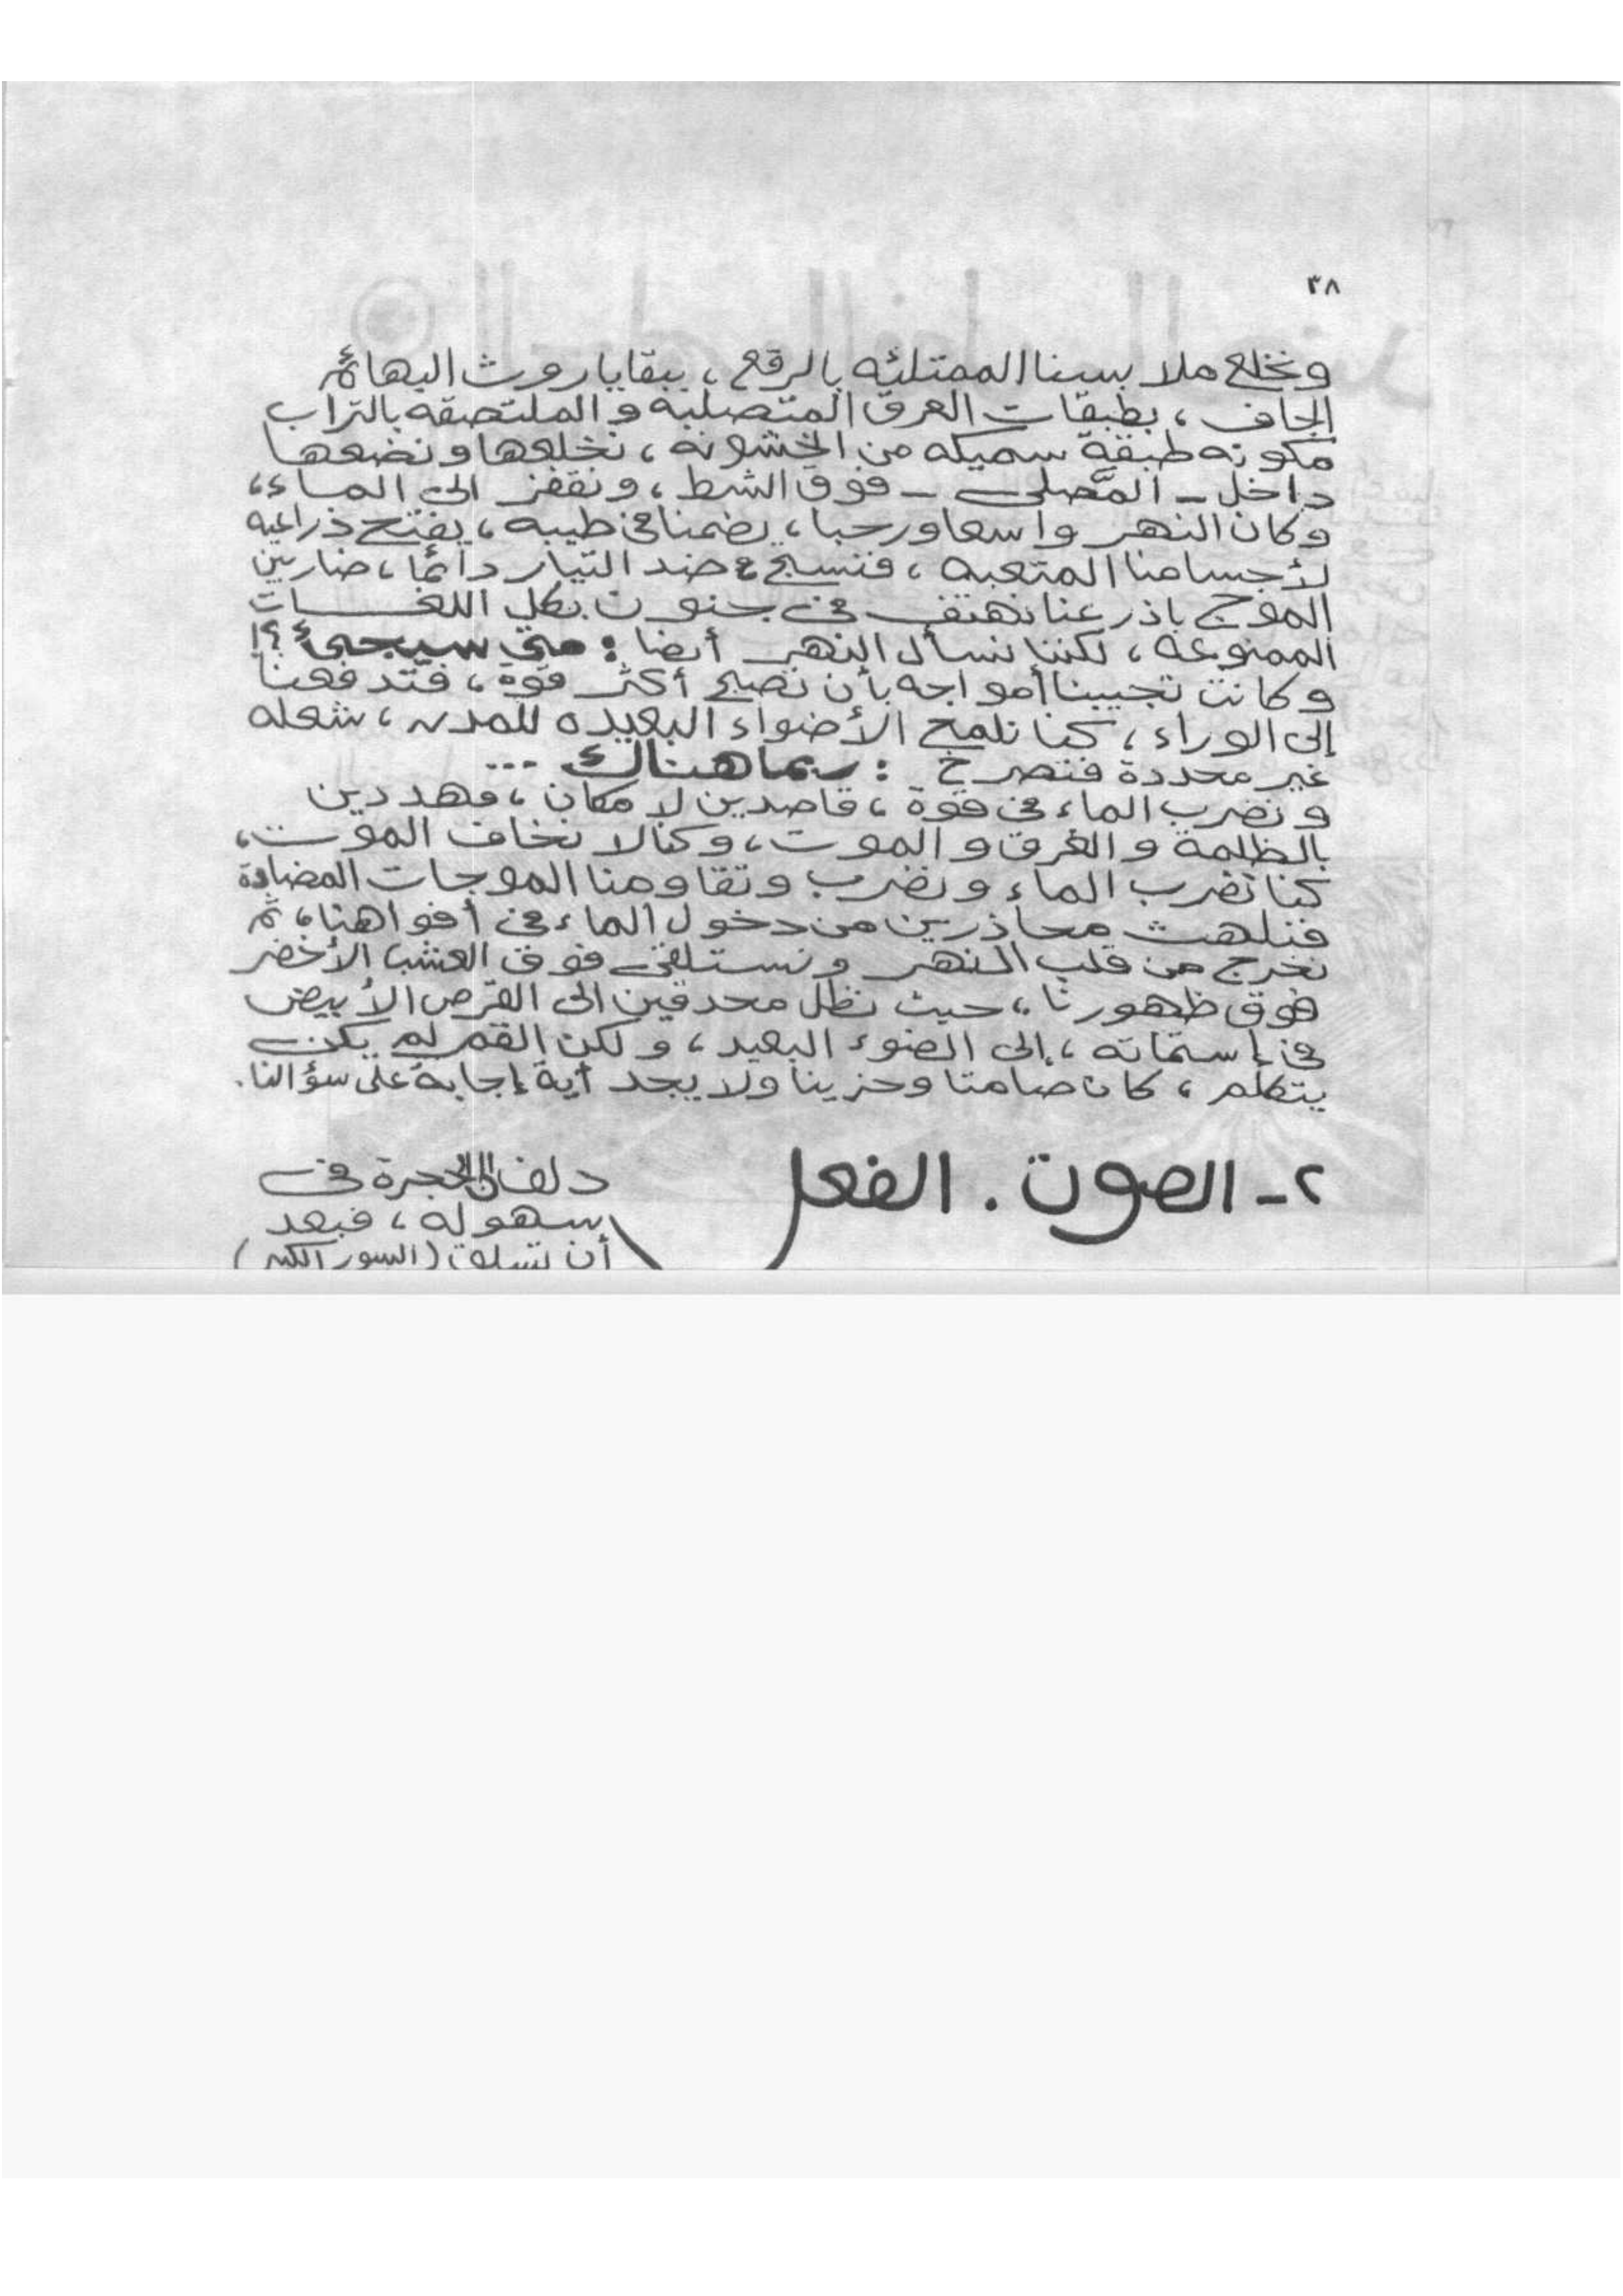 ٣٨
ونخلع ملابسنا الممتلئه بالرقع ، ببقايا روث البهائم
الجاف ، بطبقات العرق المتصلبه و الملتصقه بالتراب
مكونه طبقة سميكه من الخشونه ، نخلعها ونضعها
داخل - المصلى - فوق الشط ، ونقفز الى الماء ،
وكان النهر واسعا ورحبا ، يضمنا فى طيبه ، يفتح ذراعيه
لأجسامنا المتعبه ، فنسبح ضد التيار دائما ، ضاربين
الموج باذرعنا نهتف فى جنون بكل اللغــات
الممنوعه ، لكننا نسأل النهر أيضا : متى سيجئ ؟!
وكانت تجيبنا أمواجه بأن تصبح أكثر قوة ، فتدفعنا
إلى الوراء ، كنا نلمح الأضواء البعيده للمدن ، شعله
غير محددة فنصرخ : ربما هناك ...
ونضرب الماء فى قوة ، قاصدين لا مكان ، مهددين
بالظلمة و الغرق و الموت ، وكنا لا نخاف الموت ،
كنا نضرب الماء ونضرب وتقاومنا الموجات المضادة
فنلهث محاذرين من دخول الماء فى أفواهنا ، ثم
نخرج من قلب النهر ونستلقى فوق العشب الأخضر
فوق ظهورنا ، حيث نظل محدقين الى القرص الأبيض
فى إستماته ، إلى الضوء البعيد ، ولكن القمر لم يكن
يتكلم ، كان صامتا وحزينا ولا يجد أية إجابة على سؤالنا .
٢ - الصوت . الفعل
دلف إلى الحجرة فى
سهوله ، فبعد
أن تسلق (السور الكبير)